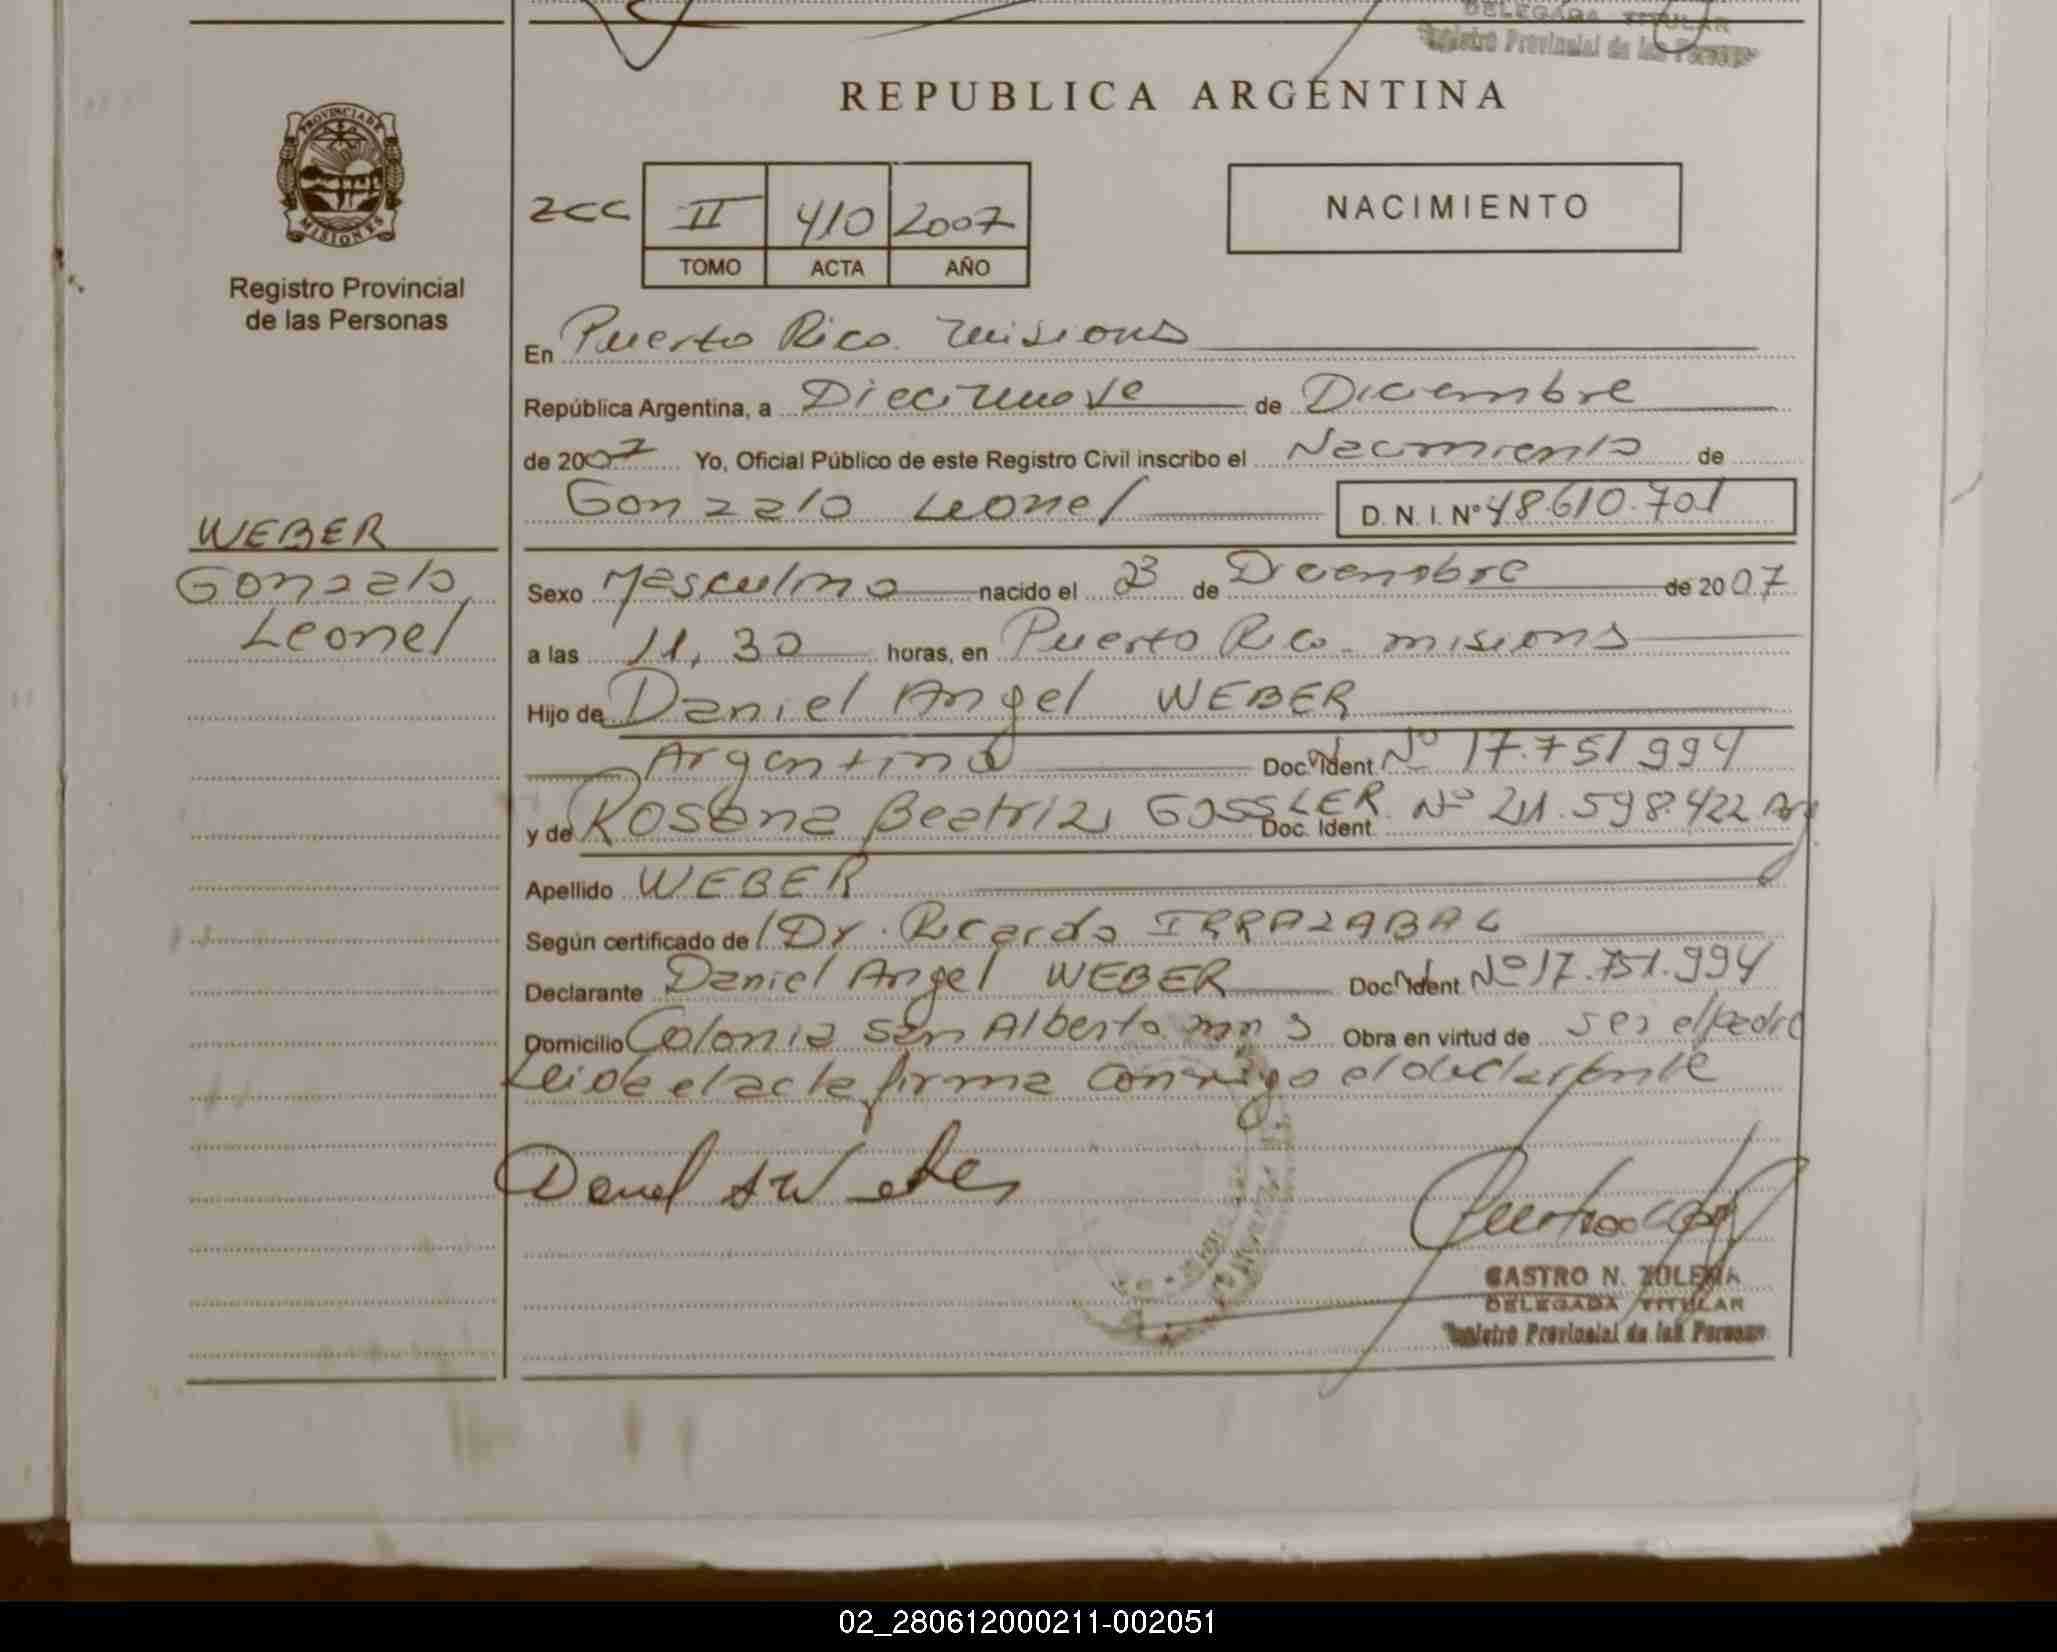 DELEGADA TITULAR
Registro Provincial de las Personas
REPUBLICA ARGENTINA
PROVINCIA DE
MISIONES
Registro Provincial
de las Personas
2CC II 410 2007
TOMO ACTA AÑO
NACIMIENTO
En Puerto Rico. Misiones
República Argentina, a Diecinueve de Diciembre
de 2007 Yo, Oficial Público de este Registro Civil inscribo el Nacimiento de
Gonzalo Leonel D. N. I. Nº 48.610.701
WEBER
Gonzalo
Leonel
Sexo Masculino nacido el de Diciembre de 2007
a las 11,30 horas, en Puerto Rico. misiones
Hijo de Daniel Angel WEBER
Argentino Doc. Ident. Nº 17.751.994
y de Rosana Beatriz GOSSLER Doc. Ident. Nº 21.598.422 Arg
Apellido WEBER
Según certificado de Dr. Ricardo IRRAZABAL
Declarante Daniel Angel WEBER Doc. Ident. Nº 17.751.994
Domicilio Colonia San Alberto. mns Obra en virtud de ser el padre
Leida el acta firma conmigo el declarante
Daniel A Weber
CASTRO N. ZULEMA
DELEGADA TITULAR
Registro Provincial de las Personas
02_280612000211-002051